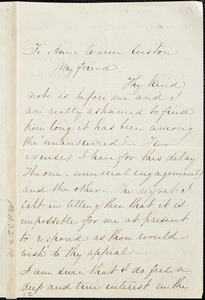 To Anne Warren Weston
My friend.
Thy kind
note is before me and I
am really ashamed to find
how long it has been among
the unanswered — Two
excuses I have for this delay
The one - unusual engagements
and the other - the regret I
felt in telling thee that it is
impossible for me at present
to respond as thou would
wish to thy appeal —
I am sure that I do feel a
deep and true interest in the